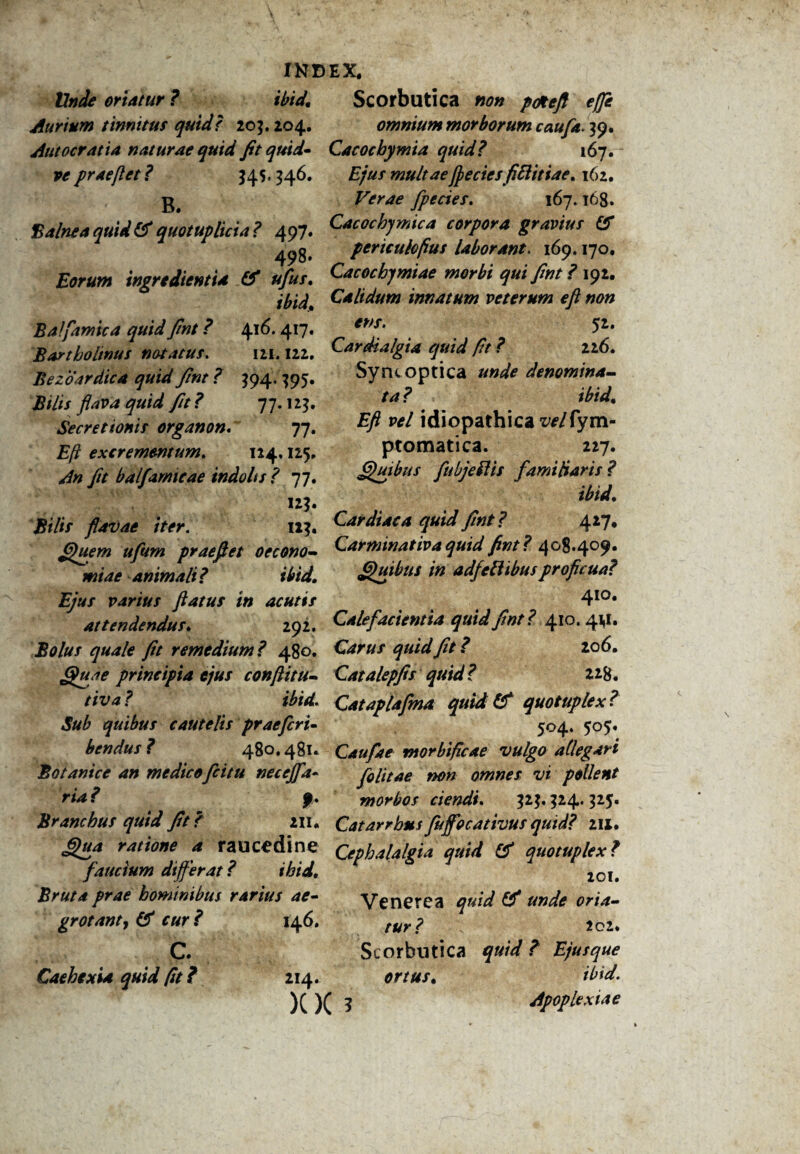 INDEX.
Unde oriatur ? ibid.
Aurium tinnitus quid? 203. 204.
Autocratia naturae quid ſit quid-
ve praeſtet ? 345. 346.
B.
Balnea quid & quotuplicia ? 497.
498.
Eorum ingredientia & uſus.
ibid.
Balſamica quid ſint ? 416. 417.
Bartholinus notatus. 121. 122.
Bezoardica quid ſint ? 394. 395.
Bilis flava quid ſit ? 77. 123.
Secretionis organon. 77.
Eſt excrementum. 124. 125.
An ſit balſamicae indolis ? 77.
123.
Bilis flavae iter. 123.
Quem uſum praeſtet oecono-
miae animali? ibid.
Ejus varius ſtatus in acutis
attendendus. 292.
Bolus quale ſit remedium? 480.
Quae principia ejus conſtitu-
tiva ? ibid.
Sub quibus cautelis praeſcri-
bendus ? 480. 481.
Botanice an medico ſcitu neceſſa-
ria ? 9.
Branchus quid ſit ? 211.
Qua ratione a raucedine
faucium differat ? ibid.
Bruta prae hominibus rarius ae-
grotant, & cur ? 146.
C.
Cachexia quid ſit ? 214.
Scorbutica non poteſt eſſe
omnium morborum cauſa. 39.
Cacochymia quid? 167.
Ejus multae ſpecies fictitiae. 162.
Verae ſpecies. 167. 168.
Cacochymica corpora gravius &
periculoſius laborant. 169. 170.
Cacochymiae morbi qui ſint ? 192.
Calidum innatum veterum eſt non
ens. 52.
Cardialgia quid ſit ? 226.
Syncoptica unde denomina-
ta ? ibid.
Eſt vel idiopathica vel ſym-
ptomatica. 227.
Quibus ſubjectis familiaris ?
ibid.
Cardiaca quid ſint ? 427.
Carminativa quid ſint ? 408. 409.
Quibus in adfectibus proficua?
410.
Calefacientia quid ſint ? 410. 411.
Carus quid ſit ? 206.
Catalepſis quid ? 228.
Cataplaſma quid & quotuplex ?
504. 505.
Cauſae morbificae vulgo allegari
ſolitae non omnes vi pollent
morbos ciendi. 323. 324. 325.
Catarrhus ſuffocativus quid? 211.
Cephalalgia quid & quotuplex ?
201.
Venerea quid & unde oria-
tur ? 202.
Scorbutica quid ? Ejusque
ortus. ibid.
)( )( 3 Apoplexiae